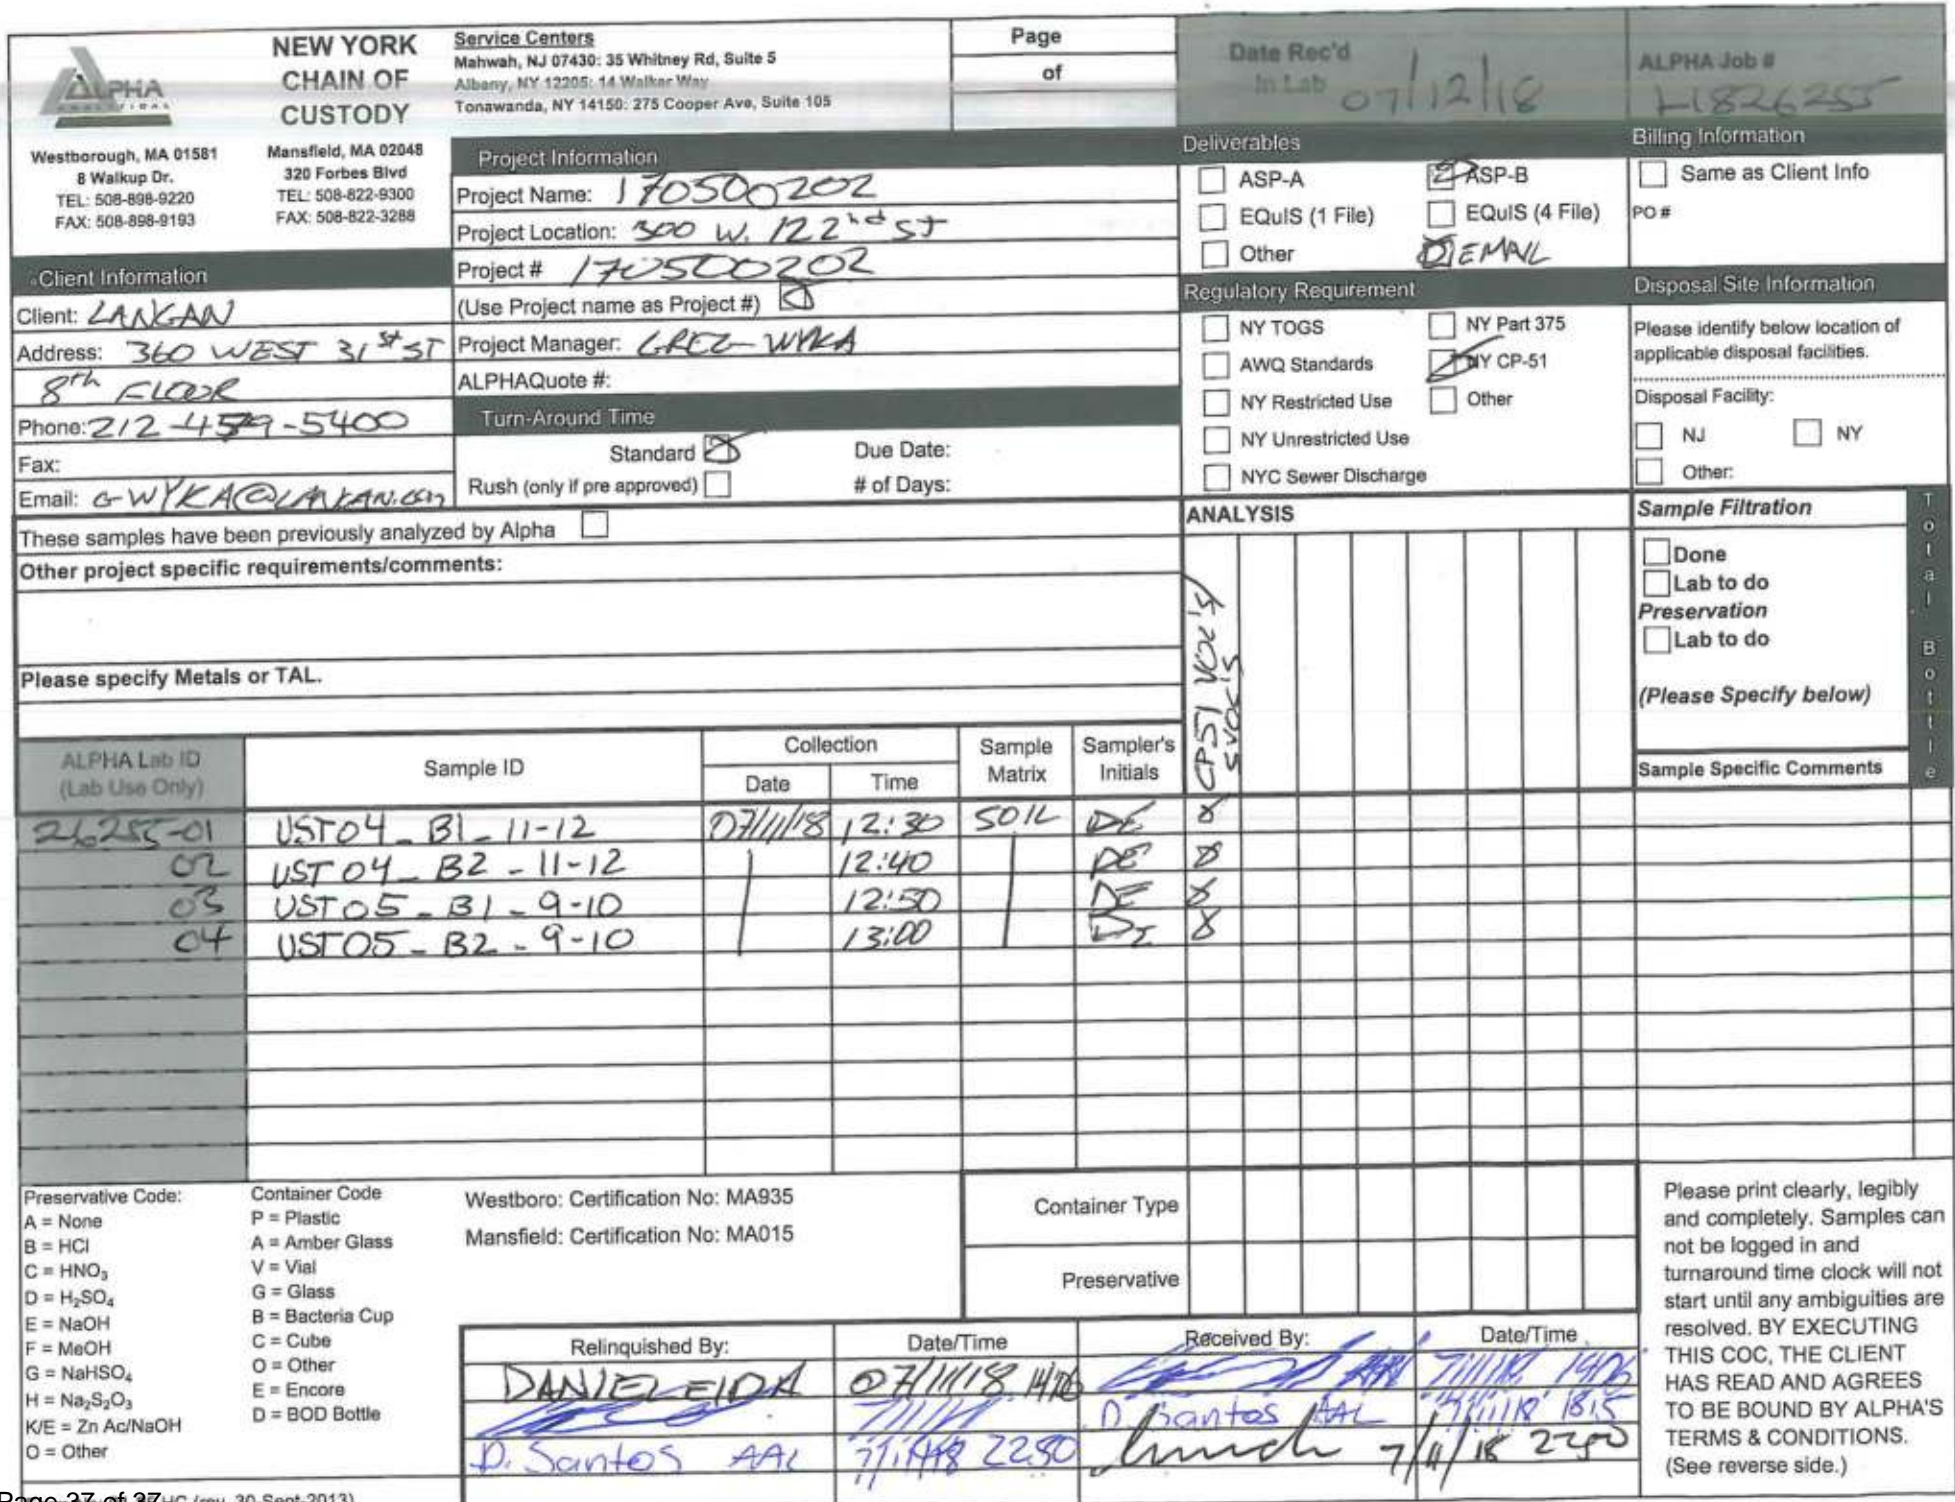 ALPHA
ANALYTICAL
NEW YORK
CHAIN OF
CUSTODY
Service Centers
Mahwah, NJ 07430: 35 Whitney Rd, Suite 5
Albany, NY 12205: 14 Walker Way
Tonawanda, NY 14150: 275 Cooper Ave, Suite 105
Page
of
Date Rec'd
in Lab 07/12/18
ALPHA Job #
L1826255
Westborough, MA 01581
8 Walkup Dr.
TEL: 508-898-9220
FAX: 508-898-9193
Mansfield, MA 02048
320 Forbes Blvd
TEL: 508-822-9300
FAX: 508-822-3288
Project Information
Project Name: 170500202
Project Location: 300 W. 122nd ST
Project # 170500202
(Use Project name as Project #)
Project Manager: GREG WYKA
ALPHAQuote #:
Client Information
Client: LANGAN
Address: 360 WEST 31st ST
8th FLOOR
Phone: 212-479-5400
Fax:
Email: GWYKA@LANGAN.com
Turn-Around Time
Standard
Due Date:
Rush (only if pre approved)
# of Days:
Deliverables
ASP-A
ASP-B
EQuIS (1 File)
EQuIS (4 File)
Other
EMAIL
Regulatory Requirement
NY TOGS
NY Part 375
AWQ Standards
NY CP-51
NY Restricted Use
Other
NY Unrestricted Use
NYC Sewer Discharge
Billing Information
Same as Client Info
PO #
Disposal Site Information
Please identify below location of
applicable disposal facilities.
Disposal Facility:
NJ NY
Other:
These samples have been previously analyzed by Alpha
Other project specific requirements/comments:
Please specify Metals or TAL.
ANALYSIS
CP51 VOC's/
SVOC's
Sample Filtration
Done
Lab to do
Preservation
Lab to do
(Please Specify below)
Total Bottle
ALPHA Lab ID
(Lab Use Only)
Sample ID
Collection
Date
Time
Sample
Matrix
Sampler's
Initials
Sample Specific Comments
26255-01 UST04_B1_11-12 07/11/18 12:30 SOIL DE X
02 UST04_B2_11-12 12:40 DE X
03 UST05_B1_9-10 12:50 DE X
04 UST05_B2_9-10 13:00 DE X
Preservative Code:
A = None
B = HCl
C = HNO3
D = H2SO4
E = NaOH
F = MeOH
G = NaHSO4
H = Na2S2O3
K/E = Zn Ac/NaOH
O = Other
Container Code
P = Plastic
A = Amber Glass
V = Vial
G = Glass
B = Bacteria Cup
C = Cube
O = Other
E = Encore
D = BOD Bottle
Westboro: Certification No: MA935
Mansfield: Certification No: MA015
Container Type
Preservative
Relinquished By:
Date/Time
Received By:
Date/Time
DANIEL EIDA 07/11/18 1406 AAL 7/11/18 1406
D. Santos AAL 7/11/18 1815
D. Santos AAL 7/11/18 2250 7/11/18 2250
Please print clearly, legibly
and completely. Samples can
not be logged in and
turnaround time clock will not
start until any ambiguities are
resolved. BY EXECUTING
THIS COC, THE CLIENT
HAS READ AND AGREES
TO BE BOUND BY ALPHA'S
TERMS & CONDITIONS.
(See reverse side.)
Page 37 of 37
HC (rev. 30-Sept-2013)